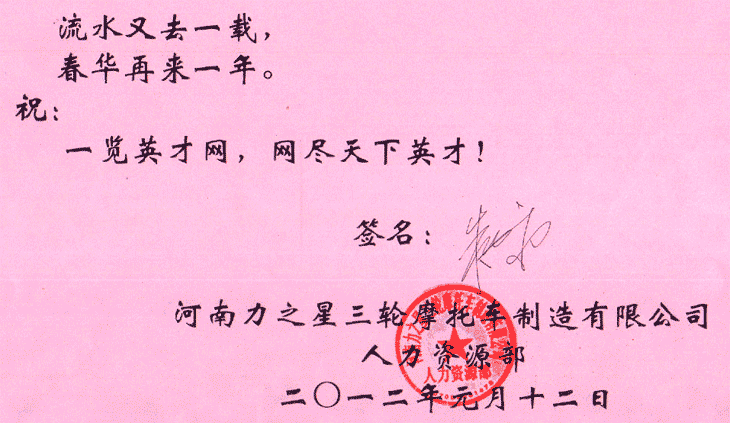 流水又去一载，
春华再来一年。
祝：
一览英才网，网尽天下英才！
签名：
河南力之星三轮摩托车制造有限公司
人力资源部
二〇一二年元月十二日
人力资源部